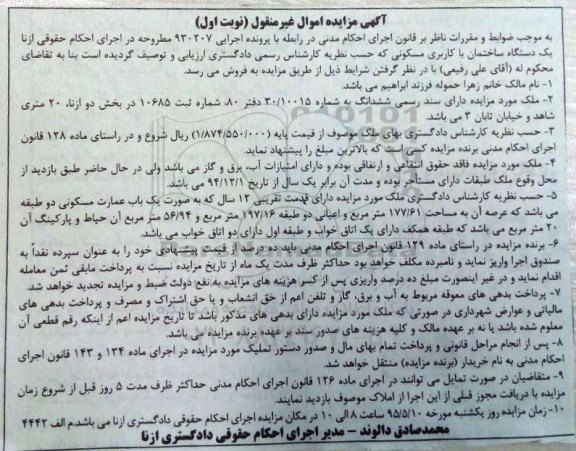 آگهی مزایده اموال غیرمنقول (نوبت اول)
به موجب ضوابط و مقررات ناظر بر قانون اجرای احکام مدنی در رابطه با پرونده اجرایی ۹۳۰۲۰۷ مطروحه در اجرای احکام حقوقی ازنا
یک دستگاه ساختمان با کاربری مسکونی که حسب نظریه کارشناس رسمی دادگستری ارزیابی و توصیف گردیده است بنا به تقاضای
محکوم له (آقای علی رفیعی) با در نظر گرفتن شرایط ذیل از طریق مزایده به فروش می رسد.
۱- نام مالک خانم زهرا حموله فرزند ابراهیم می باشد.
۲- ملک مورد مزایده دارای سند رسمی ششدانگ به شماره ۳۰/۱۰۰۱۵ دفتر ۸۰ شماره ثبت ۱۰۶۸۵ در بخش دو ازنا، ۲۰ متری
شاهد و خیابان تابان ۳ می باشد.
۳- حسب نظریه کارشناس دادگستری بهای ملک موصوف از قیمت پایه (۱/۸۷۴/۵۵۰/۰۰۰) ریال شروع و در راستای ماده ۱۲۸ قانون
اجرای احکام مدنی برنده مزایده کسی است که بالاترین مبلغ را پیشنهاد نماید.
۴- ملک مورد مزایده فاقد حقوق انتفاعی و ارتفاقی بوده و دارای امتیازات آب، برق و گاز می باشد ولی در حال حاضر طبق بازدید از
محل وقوع ملک طبقات دارای مستأجر بوده و مدت آن برابر یک سال از تاریخ ۹۴/۱۲/۱ می باشد.
۵- حسب نظریه کارشناس دادگستری ملک مورد مزایده دارای قدمت تقریبی ۱۲ سال که به صورت یک باب عمارت مسکونی دو طبقه
می باشد که عرصه آن به مساحت ۱۷۷/۶۱ متر مربع و اعیانی دو طبقه ۱۹۷/۱۶ متر مربع و ۵۶/۹۴ متر مربع آن حیاط و پارکینگ آن
۲۰ متر مربع می باشد که طبقه همکف دارای یک اتاق خواب و طبقه اول دارای دو اتاق خواب می باشد.
۶- برنده مزایده در راستای ماده ۱۲۹ قانون اجرای احکام مدنی باید ده درصد از قیمت پیشنهادی خود را به عنوان سپرده نقداً به
صندوق اجرا واریز نماید و نامبرده مکلف خواهد بود حداکثر ظرف مدت یک ماه از تاریخ مزایده نسبت به پرداخت مابقی ثمن معامله
اقدام نماید و در غیر اینصورت مبلغ ده درصد واریزی پس از کسر هزینه های مزایده به نفع دولت ضبط و مزایده تجدید خواهد شد.
۷- پرداخت بدهی های معوقه مربوط به آب و برق، گاز و تلفن اعم از حق انشعاب و یا حق اشتراک و مصرف و پرداخت بدهی های
مالیاتی و عوارض شهرداری در صورتی که ملک مورد مزایده دارای بدهی های مذکور باشد تا تاریخ مزایده اعم از اینکه رقم قطعی آن
معلوم شده باشد یا نه بر عهده مالک و کلیه هزینه های صدور سند بر عهده برنده مزایده می باشد.
۸- پس از انجام مراحل قانونی و پرداخت تمام بهای مال و صدور دستور تملیک مورد مزایده در اجرای ماده ۱۳۴ و ۱۴۳ قانون اجرای
احکام مدنی به نام خریدار (برنده مزایده) منتقل خواهد شد.
۹- متقاضیان در صورت تمایل می توانند در اجرای ماده ۱۲۶ قانون اجرای احکام مدنی حداکثر ظرف مدت ۵ روز قبل از شروع زمان
مزایده با دریافت مجوز قبلی از این اجرا از املاک موصوف بازدید نمایند.
۱۰- زمان مزایده روز یکشنبه مورخه ۹۵/۵/۱۰ ساعت ۸ الی ۱۰ در مکان مزایده اجرای احکام حقوقی دادگستری ازنا می باشد.م الف ۴۴۴۲
محمدصادق دالوند - مدیر اجرای احکام حقوقی دادگستری ازنا